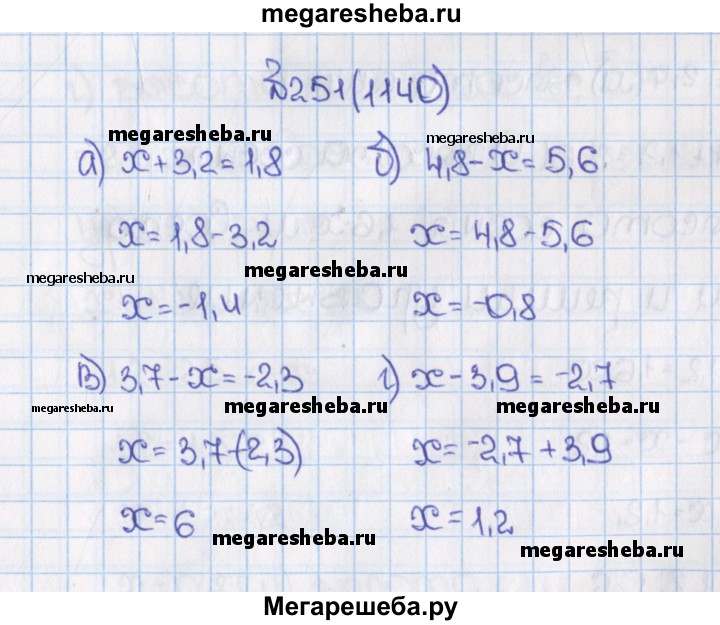 megaresheba.ru
№251(1140)
megaresheba.ru
megaresheba.ru
а) x+3,2=1,8
б) 4,8-x=5,6
x=1,8-3,2
x=4,8-5,6
megaresheba.ru
megaresheba.ru
x=-1,4
x=-0,8
в) 3,7-x=-2,3
г) x-3,9=-2,7
megaresheba.ru
megaresheba.ru
megaresheba.ru
x=3,7-(2,3)
x=-2,7+3,9
x=6
x=1,2
megaresheba.ru
megaresheba.ru
Мегарешеба.ру